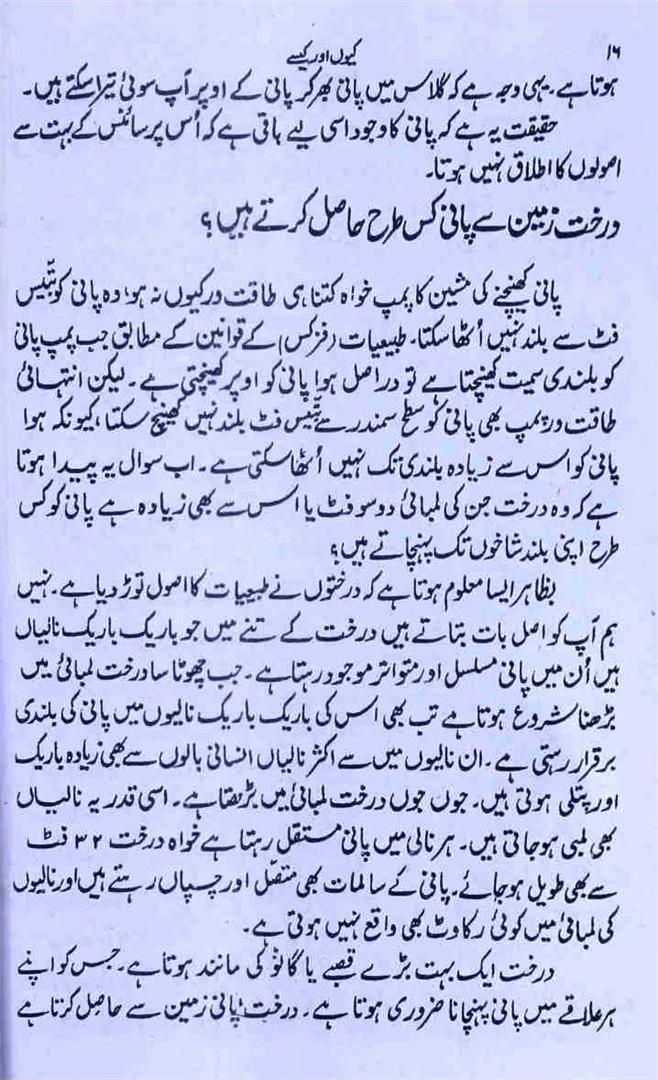 ۱۶ کیوں اور کیسے
ہوتا ہے۔ یہی وجہ ہے کہ گلاس میں پانی بھر کر پانی کے اوپر آپ سوئی تیرا سکتے ہیں۔
حقیقت یہ ہے کہ پانی کا وجود اسی لیے باقی ہے کہ اُس پر سائنس کے بہت سے
اصولوں کا اطلاق نہیں ہوتا۔
درخت زمین سے پانی کس طرح حاصل کرتے ہیں؟
پانی کھینچنے کی مشین کا پمپ خواہ کتنا ہی طاقت ور کیوں نہ ہو، وہ پانی کو بتّیس
فٹ سے بلند نہیں اُٹھا سکتا۔ طبیعیات (فزکس) کے قوانین کے مطابق جب پمپ پانی
کو بلندی سمیت کھینچتا ہے تو دراصل ہوا پانی کو اوپر کھینچتی ہے۔ لیکن انتہائی
طاقت ور پمپ بھی پانی کو سطح سمندر سے بتّیس فٹ بلند نہیں کھینچ سکتا، کیونکہ ہوا
پانی کو اس سے زیادہ بلندی تک نہیں اُٹھا سکتی ہے۔ اب سوال یہ پیدا ہوتا
ہے کہ وہ درخت جن کی لمبائی دو سو فٹ یا اس سے بھی زیادہ ہے پانی کو کس
طرح اپنی بلند شاخوں تک پہنچاتے ہیں؟
بظاہر ایسا معلوم ہوتا ہے کہ درختوں نے طبیعیات کا اصول توڑ دیا ہے۔ نہیں
ہم آپ کو اصل بات بتاتے ہیں درخت کے تنے میں جو باریک باریک نالیاں
ہیں اُن میں پانی مسلسل اور متواتر موجود رہتا ہے۔ جب چھوٹا سا درخت لمبائی میں
بڑھنا شروع ہوتا ہے تب بھی اس کی باریک باریک نالیوں میں پانی کی بلندی
برقرار رہتی ہے۔ ان نالیوں میں سے اکثر نالیاں انسانی بالوں سے بھی زیادہ باریک
اور پتلی ہوتی ہیں۔ جوں جوں درخت لمبائی میں بڑھتا ہے۔ اسی قدر یہ نالیاں
بھی لمبی ہو جاتی ہیں۔ ہر نالی میں پانی مستقل رہتا ہے خواہ درخت ۳۲ فٹ
سے بھی طویل ہو جائے۔ پانی کے سالمات بھی متصّل اور چسپاں رہتے ہیں اور نالیوں
کی لمبائی میں کوئی رکاوٹ بھی واقع نہیں ہوتی ہے۔
درخت ایک بہت بڑے قصبے یا گاؤں کی مانند ہوتا ہے۔ جس کو اپنے
ہر علاقے میں پانی پہنچانا ضروری ہوتا ہے۔ درخت پانی زمین سے حاصل کرتا ہے